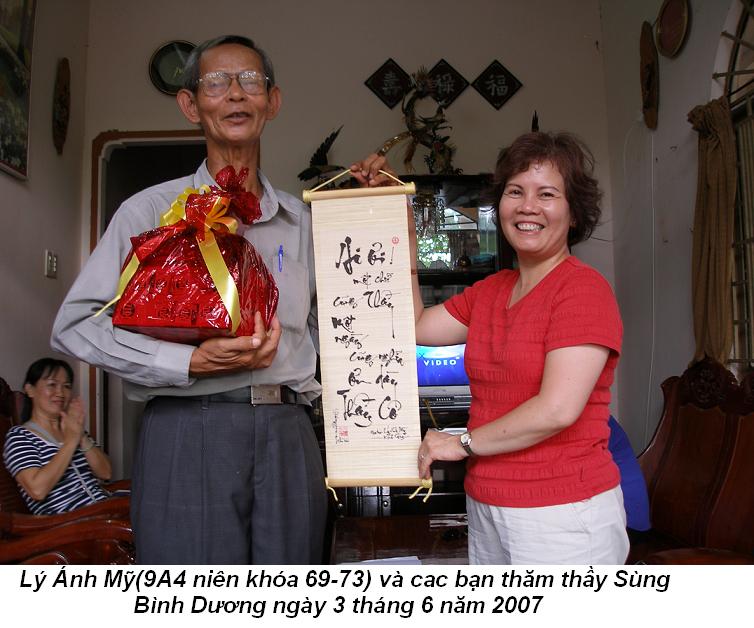 喜 祿 福
Ai ơi!
một chữ
cũng Thầy
Một
ngày
cũng nghĩa
ơn dày
Thầy Cô
VIDEO
Lý Ánh Mỹ(9A4 niên khóa 69-73) và cac bạn thăm thầy Sùng
Bình Dương ngày 3 tháng 6 năm 2007